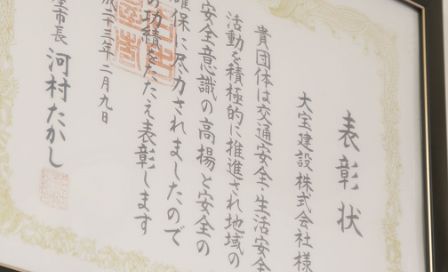 表彰状
大宝建設株式会社様
貴団体は交通安全・生活安全
活動を積極的に推進され地域の
安全意識の高揚と安全の
確保に尽力されましたので
の功績をたたえ表彰します
成二十三年二月九日
屋市長 河村たかし